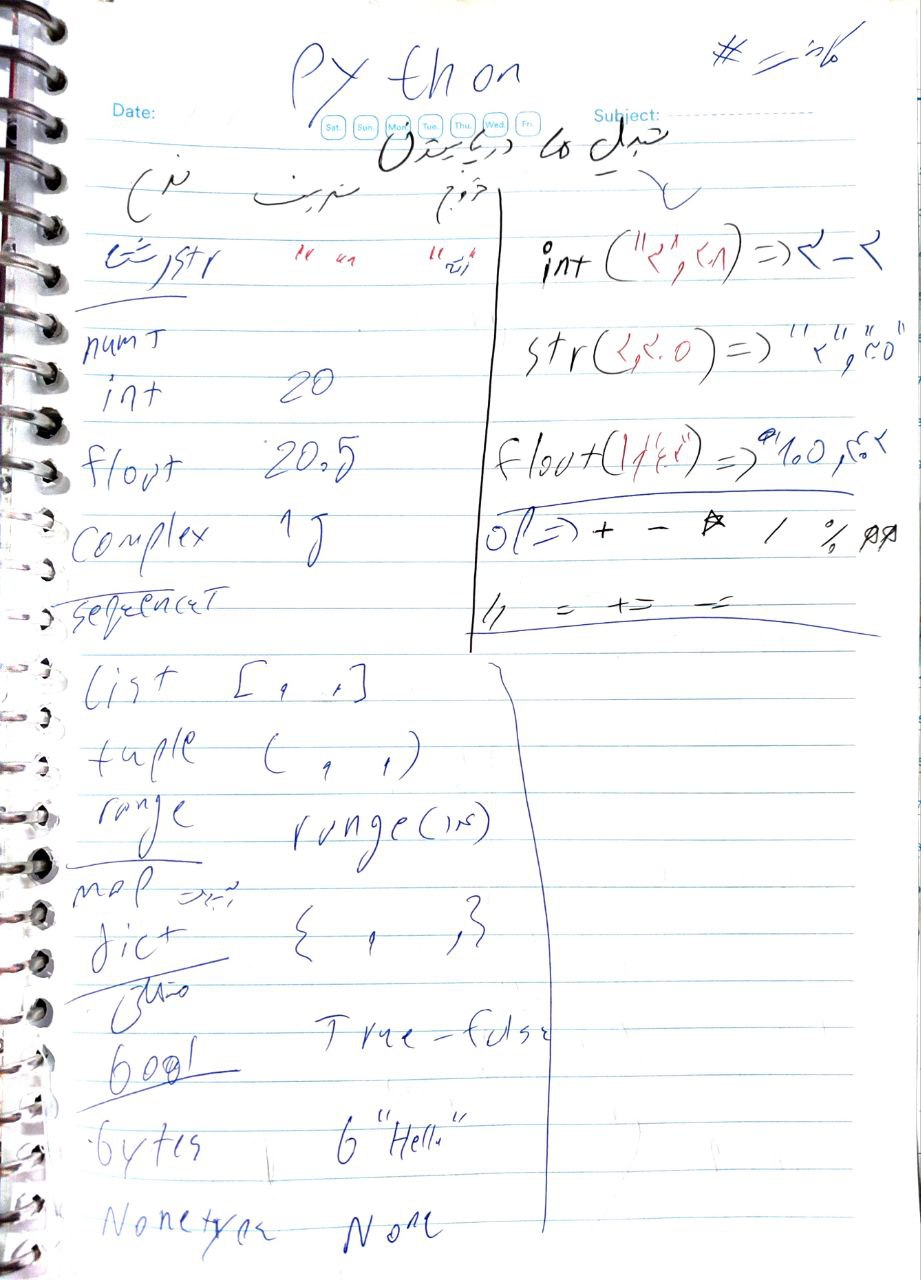 Python
# =
Date:
Sat. Sun. Mon. Tue. Thu. Wed. Fri.
Subject:
تبدیل ها در پایتون
str " "
numT
int 20
float 20.5
complex 1j
sequenceT
list [ , , ]
tuple ( , , )
range range( )
map
dict { , , }
منطقی
bool True - false
bytes b "Hello"
Nonetype None
int ("2", 2.8) => 2 - 2
str(2, 2.0) => "2", "2.0"
float(1, ) => 1.0,
op => + - * / % **
// = += -=